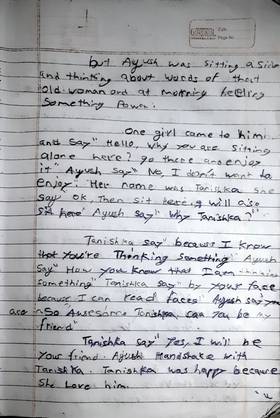 Date
Page No.
but Ayush was sitting a side
and thinking about words of that
old woman and at morning feeling
Something Power.
One girl came to him
and Say "Hello, why you are sitting
alone here? go there and enjoy
it" Ayush say "No, I don't want to
enjoy". Her name was Tanishka she
say ok, Then sit here, I will also
sit here Ayush say "Why Tanishka?"
Tanishka say "because I know
that you're Thinking something" Ayush
Say "How you know that I am thinking
something" Tanishka say "by your face
because I can read faces" Ayush say you
are So Awesome Tanishka can you be my
friend"
Tanishka say "Yes, I will be
your friend. Ayush Handshake with
Tanishka. Tanishka was happy because
She Love him.